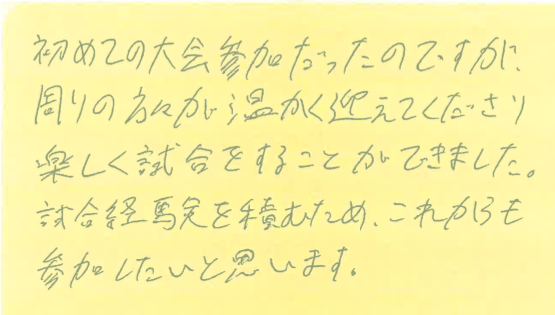 初めての大会参加だったのですが、
周りの方々が温かく迎えてくださり
楽しく試合をすることができました。
試合経験を積むため、これからも
参加したいと思います。